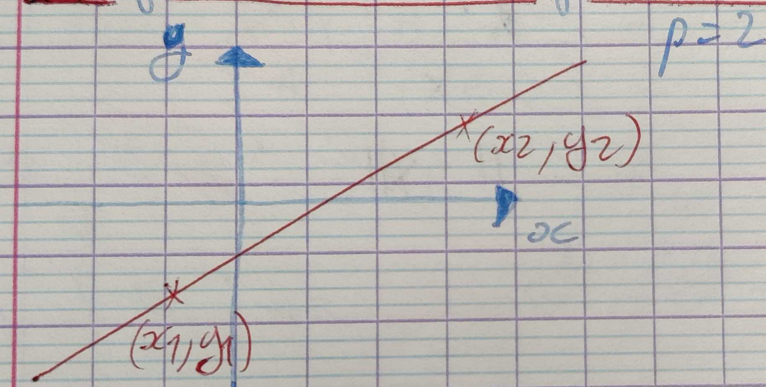 y
p = 2
(x2, y2)
x
(x1, y1)